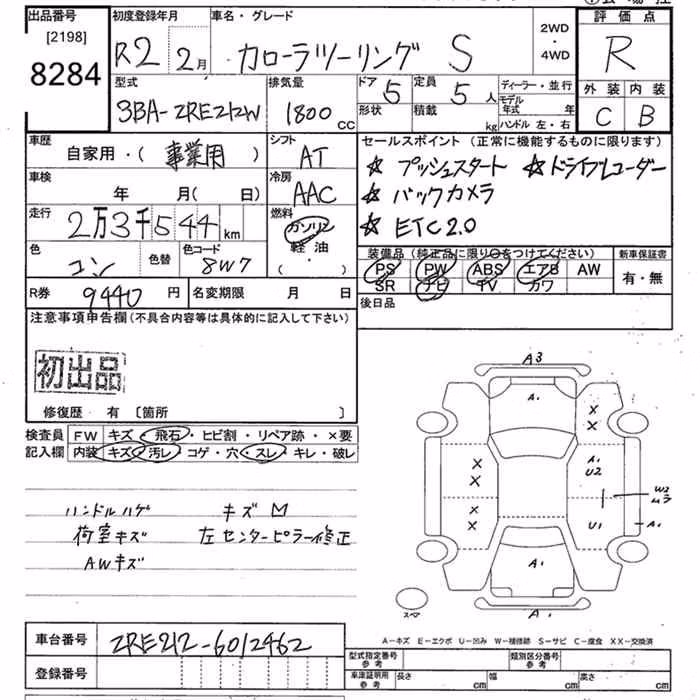 出品番号 初度登録年月 車名・グレード 評価点
[2198] 8284
R2 2月 カローラツーリング S 2WD ・ 4WD R
型式 排気量 ドア 5 定員 5人 ディーラー・並行 外装 内装
3BA-ZRE212W 1800cc 形状 積載 kg モデル年式 年 ハンドル 左・右 C B
車歴 シフト セールスポイント(正常に機能するものに限ります)
自家用・(事業用) AT ☆プッシュスタート ☆ドライブレコーダー
車検 冷房 ☆バックカメラ
年 月(日) AAC ☆ETC2.0
走行 2万3千544km 燃料 ガソリン・軽油・( )
色 コン 色替 色コード 8W7
装備品(純正品に限り〇をつけてください) 新車保証書
PS PW ABS エアB AW 有・無
SR ナビ TV カワ
R券 9440円 名変期限 月 日 後日品
注意事項申告欄(不具合内容等は具体的に記入して下さい)
初出品
修復歴 有 〔箇所 〕
検査員 FW キズ・飛石・ヒビ割・リペア跡・×要
記入欄 内装 キズ・汚レ・コゲ・穴・スレ・キレ・破レ
ハンドルハゲ キズM
荷室キズ 左センターピラー修正
AWキズ
A3
A1
×
×
A1
U2
×
×
W2
ムラ
×
×
U1
A1
A1
スペア
A1
A-キズ E-エクボ U-凹み W-補修跡 S-サビ C-腐食 XX-交換済
車台番号 ZRE212-6012462
型式指定番号 参考 類別区分番号 参考
登録番号 車庫証明用 参考 長さ cm 幅 cm 高さ cm